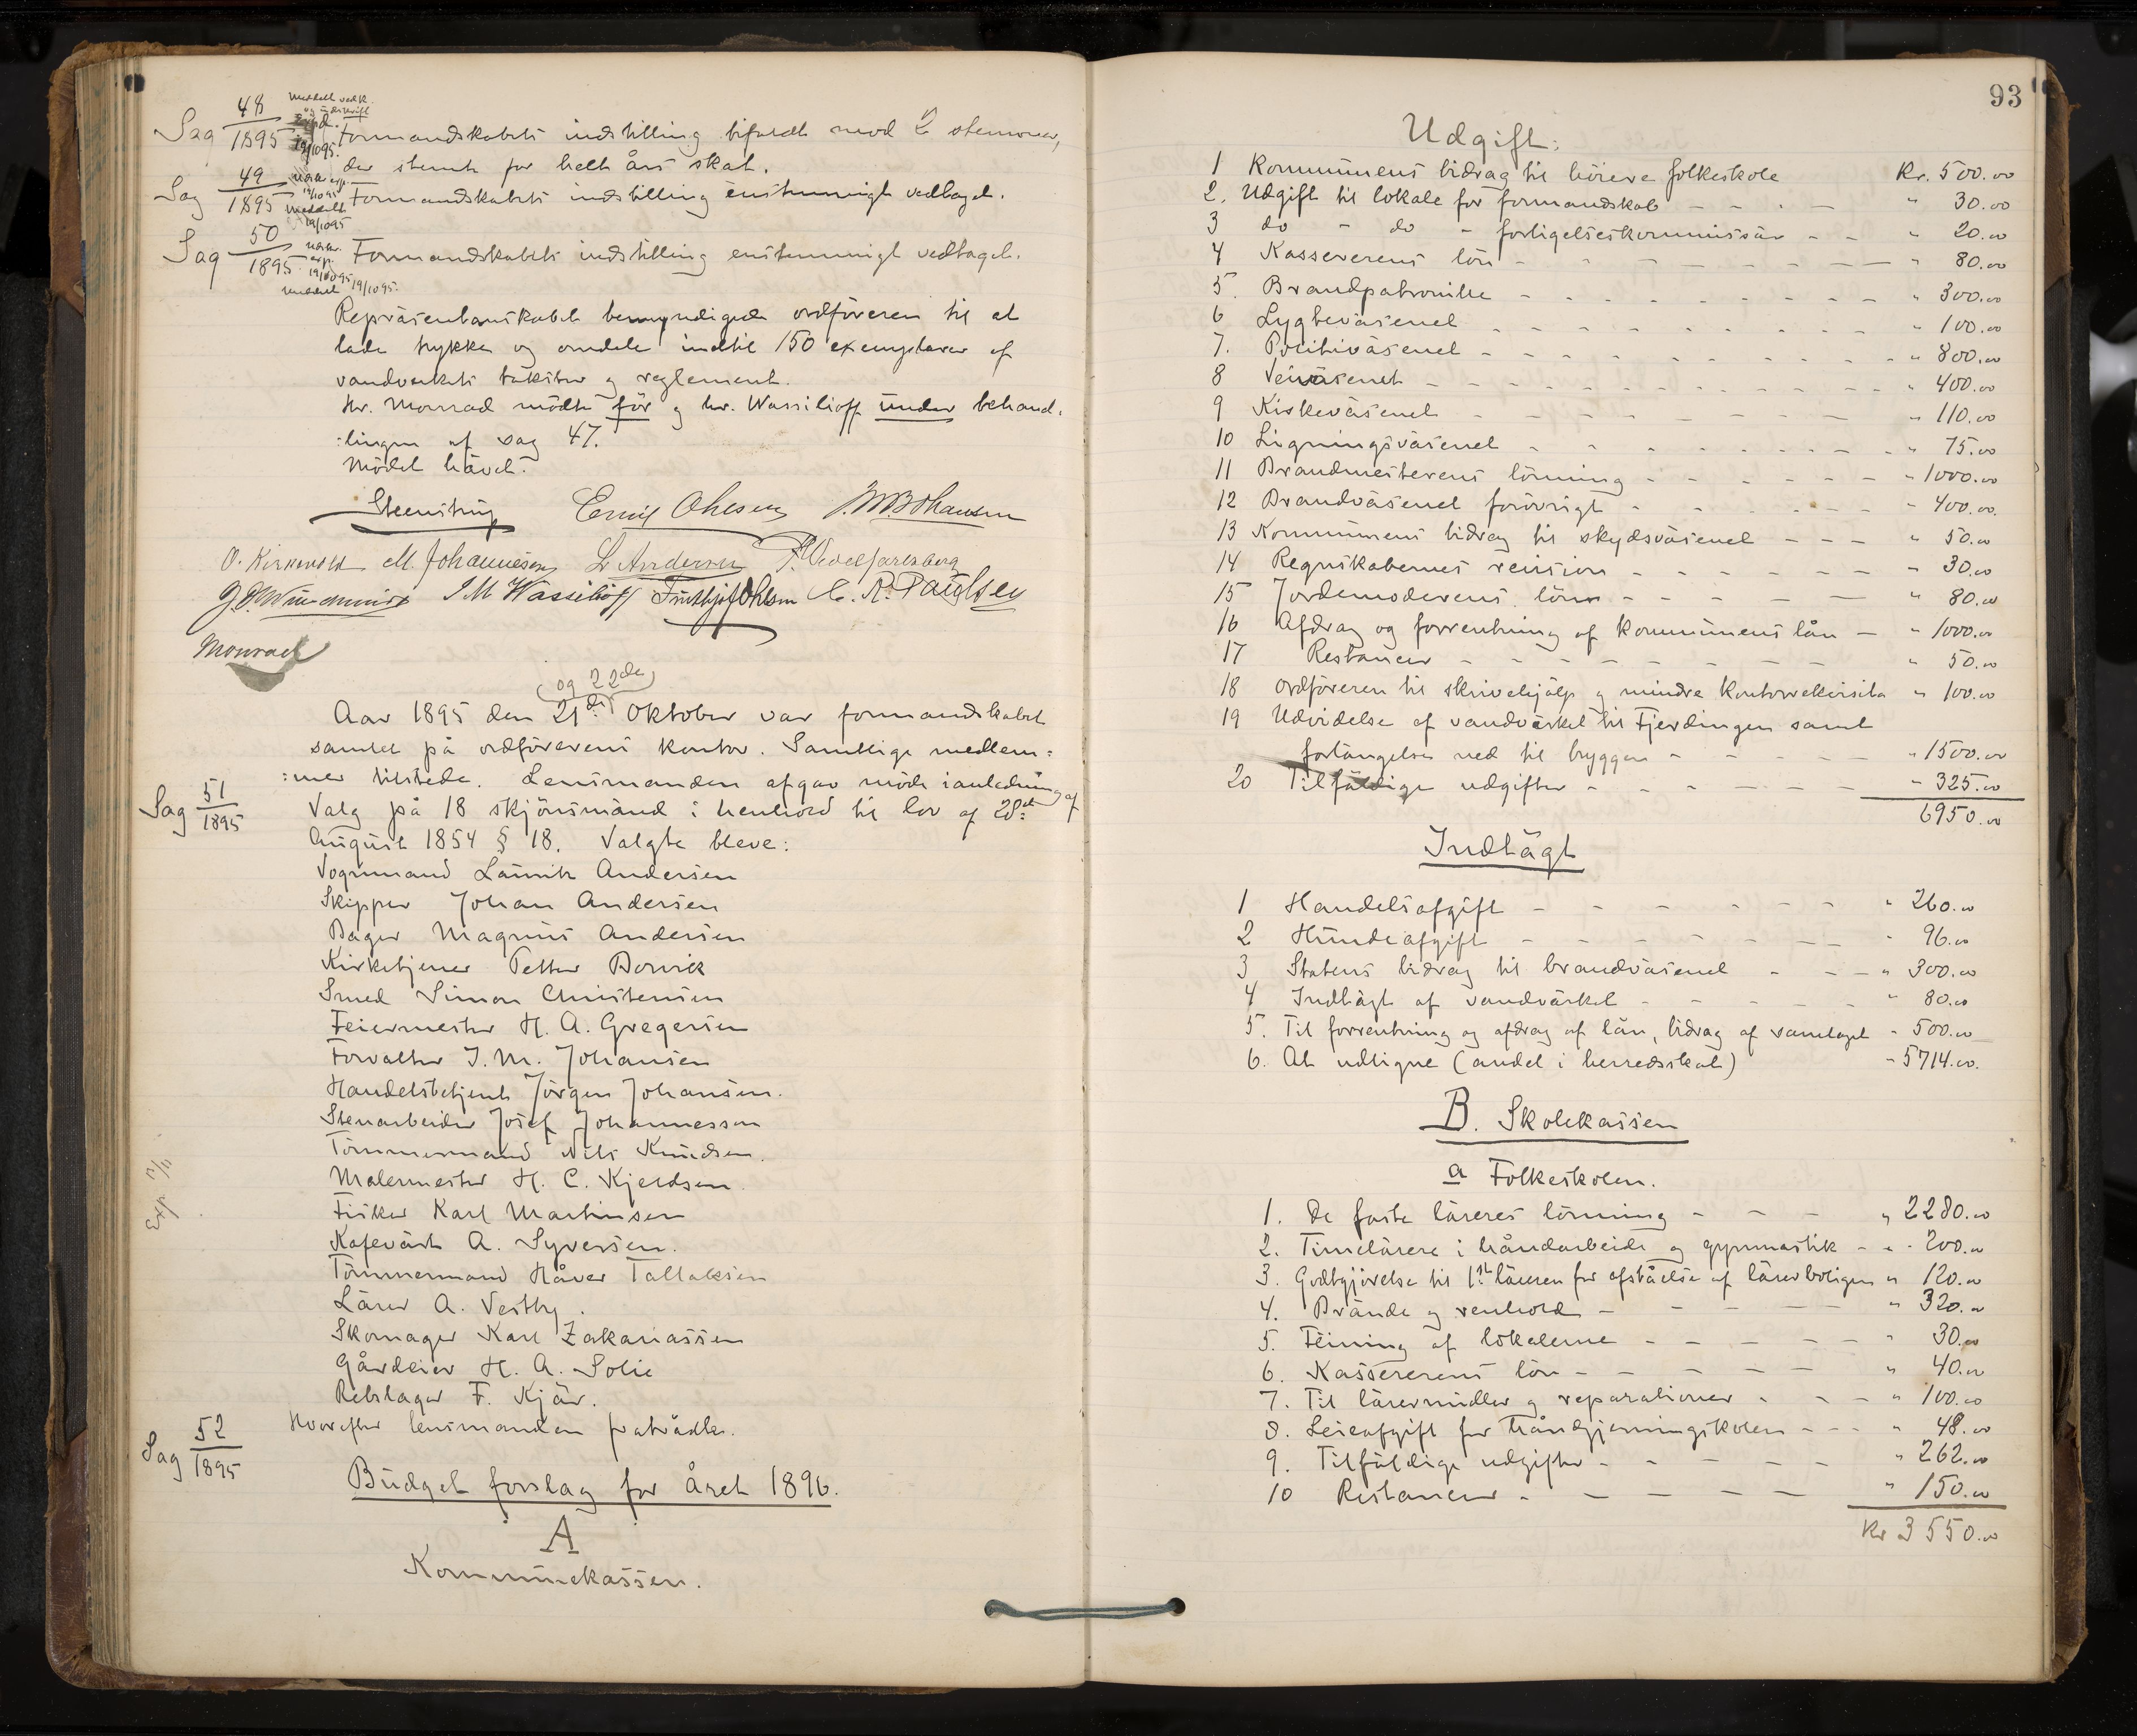 Sag 48/1895 Formandskabets indstilling bifaldt mod 2 stemmer,
der stemte for helt års skat.
Sag 49/1895 Formandskabets indstilling enstemmigt vedtaget.
Sag 50/1895 Formandskabets indstilling enstemmigt vedtaget.
Meddelt 19/10 95.
Repräsentanskabet bemyndigede ordföreren til at
lade trykke og omdele indtil 150 exemplarer af
vandverkets takster og reglement.
Hr. Monrad mödte för og hr. Wassilioff under behand-
:lingen af sag 47.
Mödet hävet.
Steenstrup Emil Ohlsen J. M. Johansen
O. Kirkevold M. Johannesen L. Andersen F. Wedel Jarlsberg
J M Wassilioff Fridthjof Ohlsen C. R. Paulsen
Monrad
(og 22de)
Aar 1895 den 21de Oktober var formandskabet
samlet på ordförerens kontor. Samtlige medlem=
:mer tilstede. Lensmanden afgav möde i anledning af
Sag 51/1895
Valg på 18 skjönsmänd i henhold til lov af 28de
August 1854 § 18. Valgte bleve:
Vognmand Lauritz Andersen
Skipper Johan Andersen
Bager Magnus Andersen
Kirketjener Petter Borvik
Smed Simon Christensen
Feiermester H. A. Gregersen
Forvalter J. M. Johansen
Handelsbetjent Jörgen Johansen.
Stenarbeider Josef Johannesson
Tömmermand Nils Knudsen.
Malermester H. C. Kjeldsen.
Fisker Karl Martinsen
Kafevärt A. Syversen.
Tömmermand Håver Tallaksen
Lärer A. Vestby.
Skomager Karl Zakariassen
Gårdeier H. A. Solie
Rebslager F. Kjär.
Exp. 12/11
Hvorefter lensmanden fratrådte.
Sag 52/1895
Budget forslag for Året 1896.
A
Kommunekassen.
93
Udgift:
1 Kommunens bidrag til höiere folkeskole Kr. 500.00
2. Udgift til lokale for formandskab - - - - " 30.00
3 do - do - forligelseskommissär - - " 20.00
4 Kassererens lön - - - - - - - " 80.00
5. Brandpatrouille - - - - - - - - " 300.00
6 Lygteväsenet - - - - - - - - " 100.00
7. Politiväsenet - - - - - - - - " 800.00
8 Veiväsenet - - - - - - - - " 400.00
9 Kirkeväsenet - - - - - - - " 110.00
10 Ligningsväsenet - - - - - - - " 75.00
11 Brandmesterens lönning - - - - - - " 1000.00
12 Brandväsenet forövrigt - - - - - - " 400.00.
13 Kommunens bidrag til skydsväsenet - - - " 50.00
14 Regnskabernes revision - - - - - - " 30.00
15 Jordemoderens lön - - - - - " 80.00
16 Afdrag og forrentning af kommunens lån - " 1000.00
17 Restancer - - - - - - - - " 50.00
18 Ordföreren til skrivehjälp og mindre kontorrekvisita " 100.00
19 Udvidelse af vandvärket til Fjerdingen samt
forlängelse ned til bryggen - - - - - " 1500.00
20 Tilfäldige udgifter - - - - - - " 325.00
6950.00
Indtägt
1 Handelsafgift - - - - - - - " 260.00
2 Hundeafgift - - - - - - - " 96.00
3 Statens bidrag til brandväsenet - - - " 300.00
4 Indtägt af vandvärket - - - - - " 80.00
5. Til forrentning og afdrag af lån, bidrag af samlaget " 500.00
6. At udligne (andel i herredsskat) " 5714.00.
B. Skolekassen
a Folkeskolen.
1. De faste läreres lönning - - - " 2280.00
2. Timelärere i håndarbeide og gymnastik - - " 200.00
3. Godtgjörelse til 1ste läreren for afståelse af lärerboligen " 120.00
4. Brände og renhold - - - - - " 320.00
5. Feining af lokalerne - - - - - " 30.00
6. Kassererens lön - - - - - " 40.00
7. Til läremidler og reparationer - - - " 100.00
8. Leieafgift for håndgjerningskolen - - - " 48.00
9. Tilfäldige udgifter - - - - - " 262.00
10 Restancer - - - - - - " 150.00
Kr 3550.00